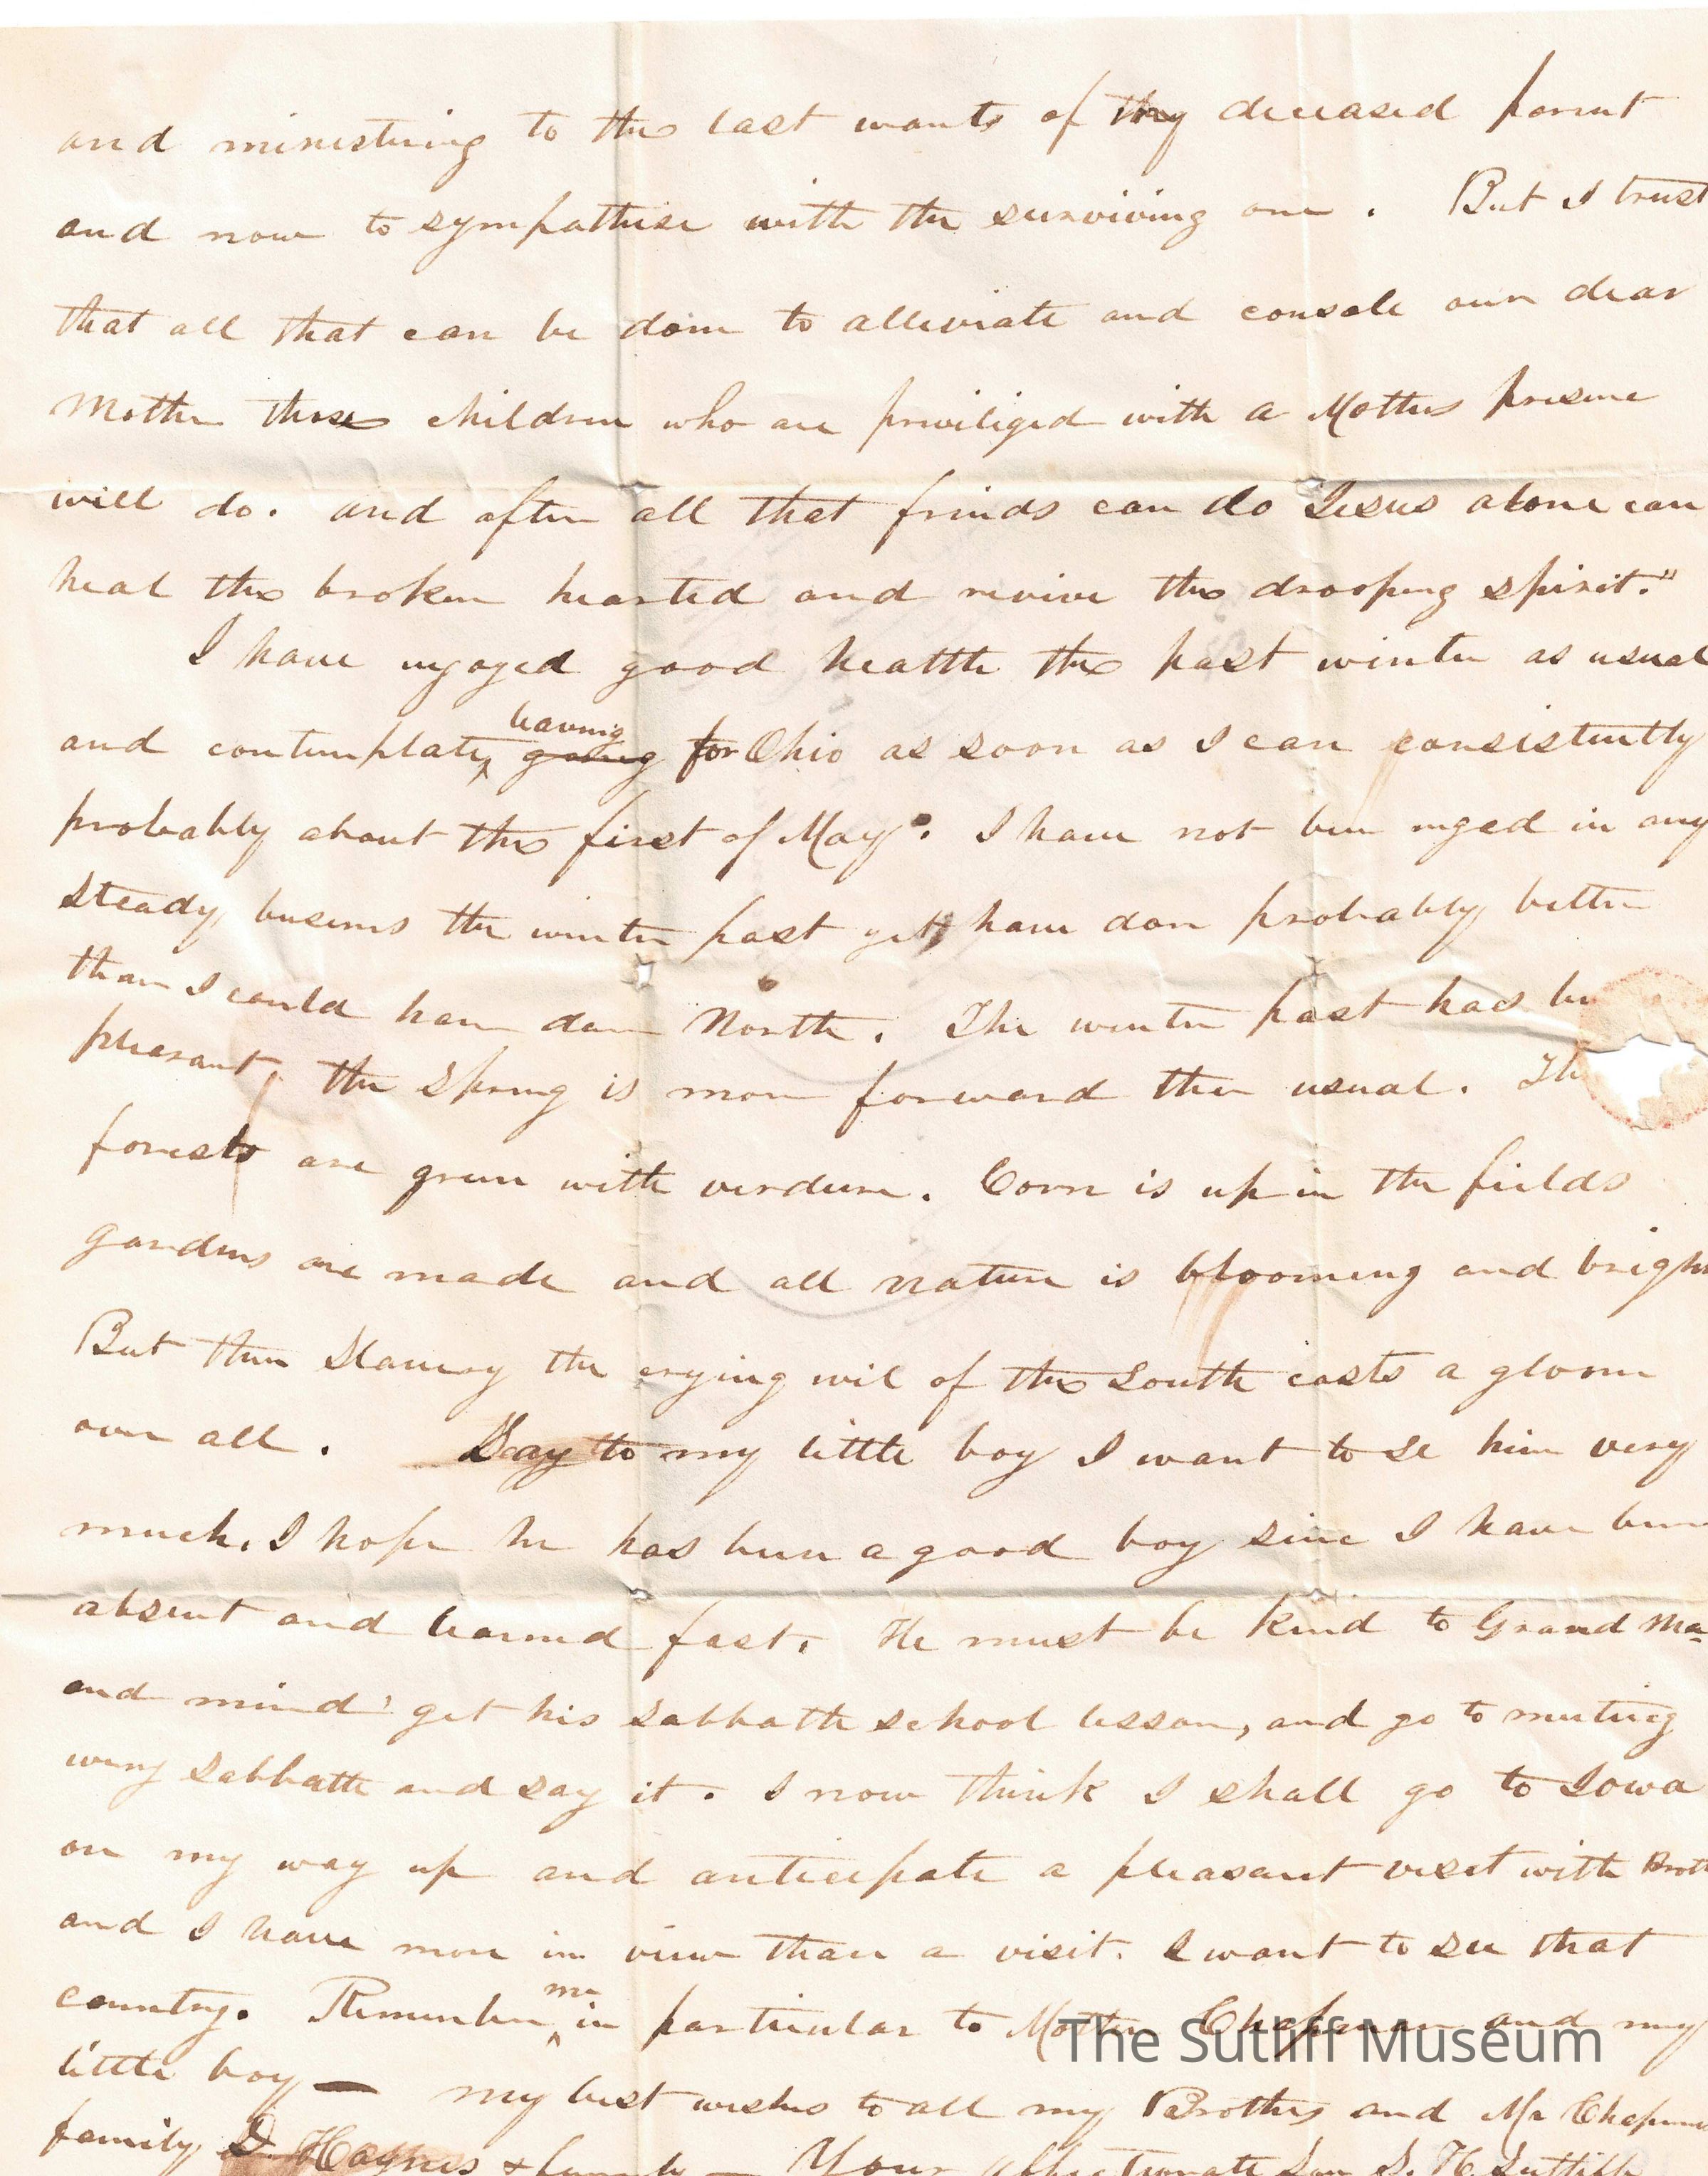 and ministering to the last wants of my deceased parent
and now to sympathise with the surviving one. But I trust
that all that can be done to alleviate and console our dear
Mother those children who are priviliged with a Mothers presence
will do. and after all that friends can do Jesus alone can
heal the broken hearted and revive the drooping spirit."
I have enjoyed good health the past winter as usual
and contemplate leaving going for Ohio as soon as I can consistently
probably about the first of May. I have not been enged in any
steady business the winter past yet have don probably better
than I could have don North. The winter past has be
pleasant, the Spring is more forward then usual. The
forests are green with verdure. Corn is up in the fields
gardens are made and all nature is blooming and bright
But then Slavery the crying evil of the South casts a gloom
over all. Say to my little boy I want to se him very
much. I hope he has been a good boy since I have been
absent and learned fast. He must be kind to Grand Ma
and mind get his sabbath school lesson, and go to meeting
every sabbath and say it. I now think I shall go to Iowa
on my way up and anticipate a pleasant viset with Broth
and I have more in view than a visit. I want to see that
country. Remember me in particular to Mother Chapman and my
little boy — my best wishes to all my Brothers and Mr Chapman
family D. Haynes & family — Your affectionate Son S. H. Sutliff
The Sutliff Museum